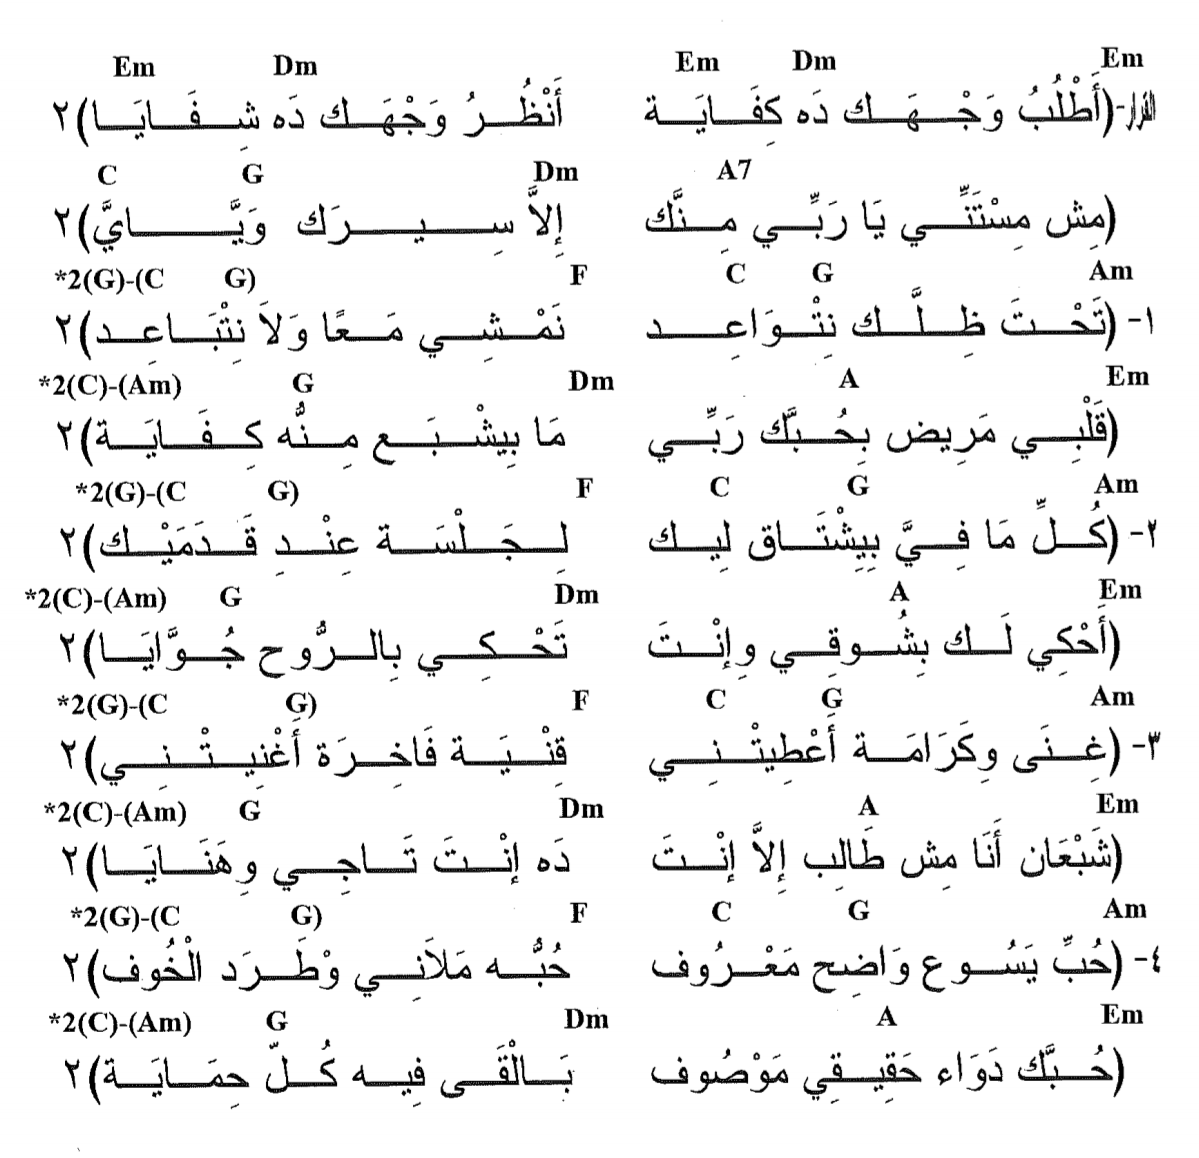 Em Dm Em Dm
القرار-(أَطْلُبُ وَجْهَك دَه كِفَايَة أَنْظُرُ وَجْهَك دَه شِفَايَا)٢
A7 Dm G C
(مِش مِسْتَنِّي يَا رَبِّي مِنَّك إِلاَّ سِيرَك وَيَّايَّ)٢
Am G C F *2(G)-(C G)
١- (تَحْتَ ظِلَّك نِتْوَاعِد نَمْشِي مَعًا وَلاَ نِتْبَاعِد)٢
Em A Dm G *2(C)-(Am)
(قَلْبِي مَرِيض بِحُبَّك رَبِّي مَا بِيشْبَع مِنُّه كِفَايَة)٢
Am G C F *2(G)-(C G)
٢- (كُلِّ مَا فِيَّ بِيِشْتَاق لِيك لِجَلْسَة عِنْدِ قَدَمَيْك)٢
Em A Dm G *2(C)-(Am)
(أَحْكِي لَك بِشُوقِي وِإِنْتَ تَحْكِي بِالرُّوح جُوَّايَا)٢
Am G C F *2(G)-(C G)
٣- (غِنَى وِكَرَامَة أَعْطِيتْنِي قِنْيَة فَاخِرَة أَغْنِيتْنِي)٢
Em A Dm G *2(C)-(Am)
(شَبْعَان أَنَا مِش طَالِب إِلاَّ إِنْتَ دَه إِنْتَ تَاجِي وِهَنَايَا)٢
Am G C F *2(G)-(C G)
٤- (حُبِّ يَسُوع وَاضِح مَعْرُوف حُبُّه مَلاَنِي وْطَرَد الْخُوف)٢
Em A Dm G *2(C)-(Am)
(حُبَّك دَوَاء حَقِيقِي مَوْصُوف بَالْقَى فِيه كُلّ حِمَايَة)٢